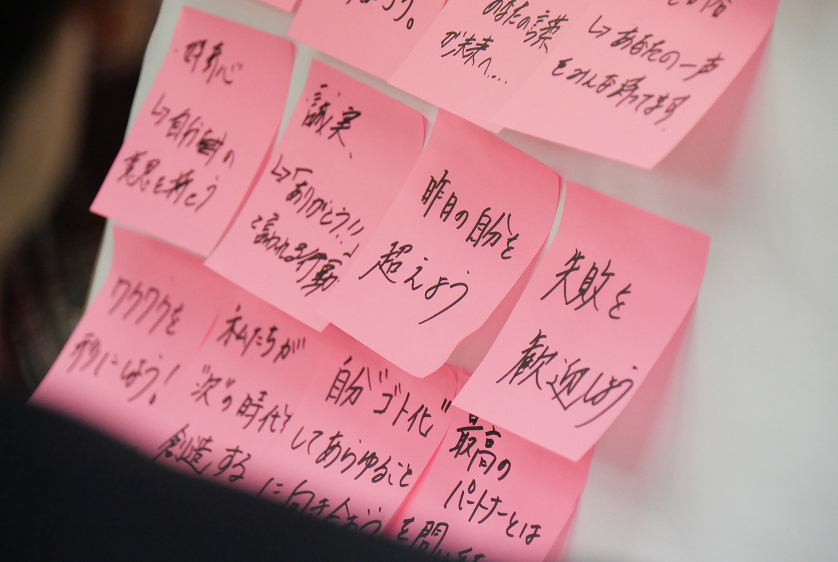 う。
あなたの一声
が未来へ…
をみんな待ってます。
好奇心
↳自分
意思を
誠実、
↳「ありがとう!!」
と言われる行動
昨日の自分を
超えよう
失敗を
歓迎しよう
ワクワクを
形にしよう!
私たちが
"次"の時代を
創造する
自分"ゴト化"
してあらゆること
に向き合おう
最高の
パートナーとは
を問い